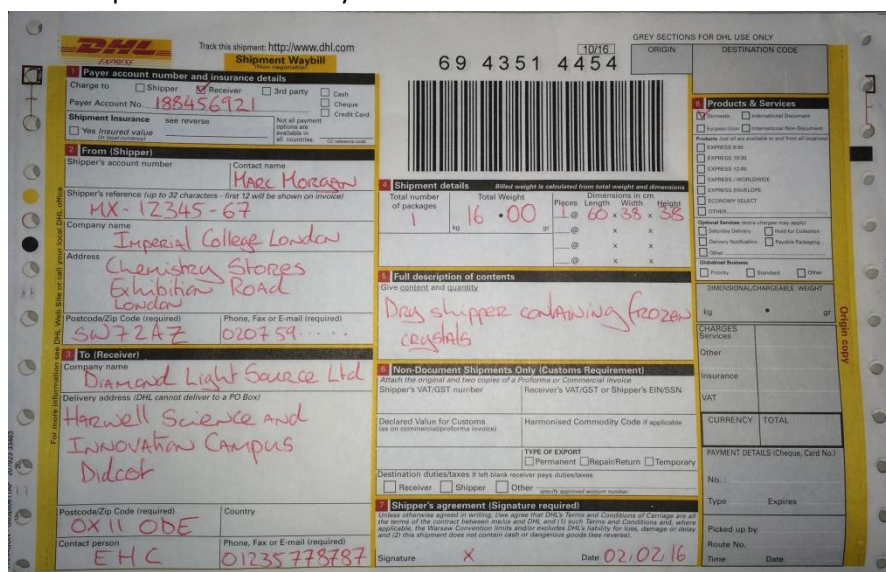 DHL
EXPRESS
Track this shipment: http://www.dhl.com
Shipment Waybill
(Non negotiable)
69 4351 4454
10/16
GREY SECTIONS FOR DHL USE ONLY
ORIGIN
DESTINATION CODE
1 Payer account number and insurance details
Charge to Shipper Receiver 3rd party
Cash
Cheque
Credit Card
Payer Account No. 188456921
Shipment Insurance see reverse
Yes Insured value
(in local currency)
Not all payment
options are
available in
all countries.
2 From (Shipper)
Shipper's account number
Contact name
MARC MORGAN
Shipper's reference (up to 32 characters - first 12 will be shown on invoice)
MX-12345-67
Company name
Imperial College London
Address
Chemistry Stores
Exhibition Road
London
Postcode/Zip Code (required)
SW72AZ
Phone, Fax or E-mail (required)
020759.....
3 To (Receiver)
Company name
Diamond Light Source Ltd
Delivery address (DHL cannot deliver to a PO Box)
Harwell Science and
Innovation Campus
Didcot
Postcode/Zip Code (required)
OX11 ODE
Country
Contact person
EHC
Phone, Fax or E-mail (required)
01235778787
4 Shipment details
Billed weight is calculated from total weight and dimensions
Total number
of packages
1
Total Weight
16 .00
kg gr
Dimensions in cm
Pieces Length Width Height
1 @ 60 x 38 x 38
@ x x
@ x x
@ x x
5 Full description of contents
Give content and quantity
Dry shipper containing frozen
crystals
6 Non-Document Shipments Only (Customs Requirement)
Attach the original and two copies of a Proforma or Commercial invoice
Shipper's VAT/GST number
Receiver's VAT/GST or Shipper's EIN/SSN
Declared Value for Customs
(as on commercial/proforma invoice)
Harmonised Commodity Code if applicable
TYPE OF EXPORT
Permanent Repair/Return Temporary
Destination duties/taxes If left blank receiver pays duties/taxes
Receiver Shipper Other
specify approved account number
7 Shipper's agreement (Signature required)
Unless otherwise agreed in writing, I/we agree that DHL's Terms and Conditions of Carriage are all
the terms of the contract between me/us and DHL and (1) such Terms and Conditions and, where
applicable, the Warsaw Convention limits and/or excludes DHL's liability for loss, damage or delay
and (2) this shipment does not contain cash or dangerous goods (see reverse).
Signature X Date 02,02,16
8 Products & Services
Domestic International Document
European Union International Non-Document
Products (not all are available to and from all locations)
EXPRESS 9:00
EXPRESS 10:30
EXPRESS 12:00
EXPRESS / WORLDWIDE
EXPRESS ENVELOPE
ECONOMY SELECT
OTHER
Optional Services (extra charges may apply)
Saturday Delivery Hold for Collection
Delivery Notification Payable Packaging
Other
Globalmail Business
Priority Standard Other
DIMENSIONAL/CHARGEABLE WEIGHT
kg . gr
CHARGES
Services
Other
Insurance
VAT
CURRENCY TOTAL
PAYMENT DETAILS (Cheque, Card No.)
No.:
Type Expires
Picked up by
Route No.
Time Date
Origin copy